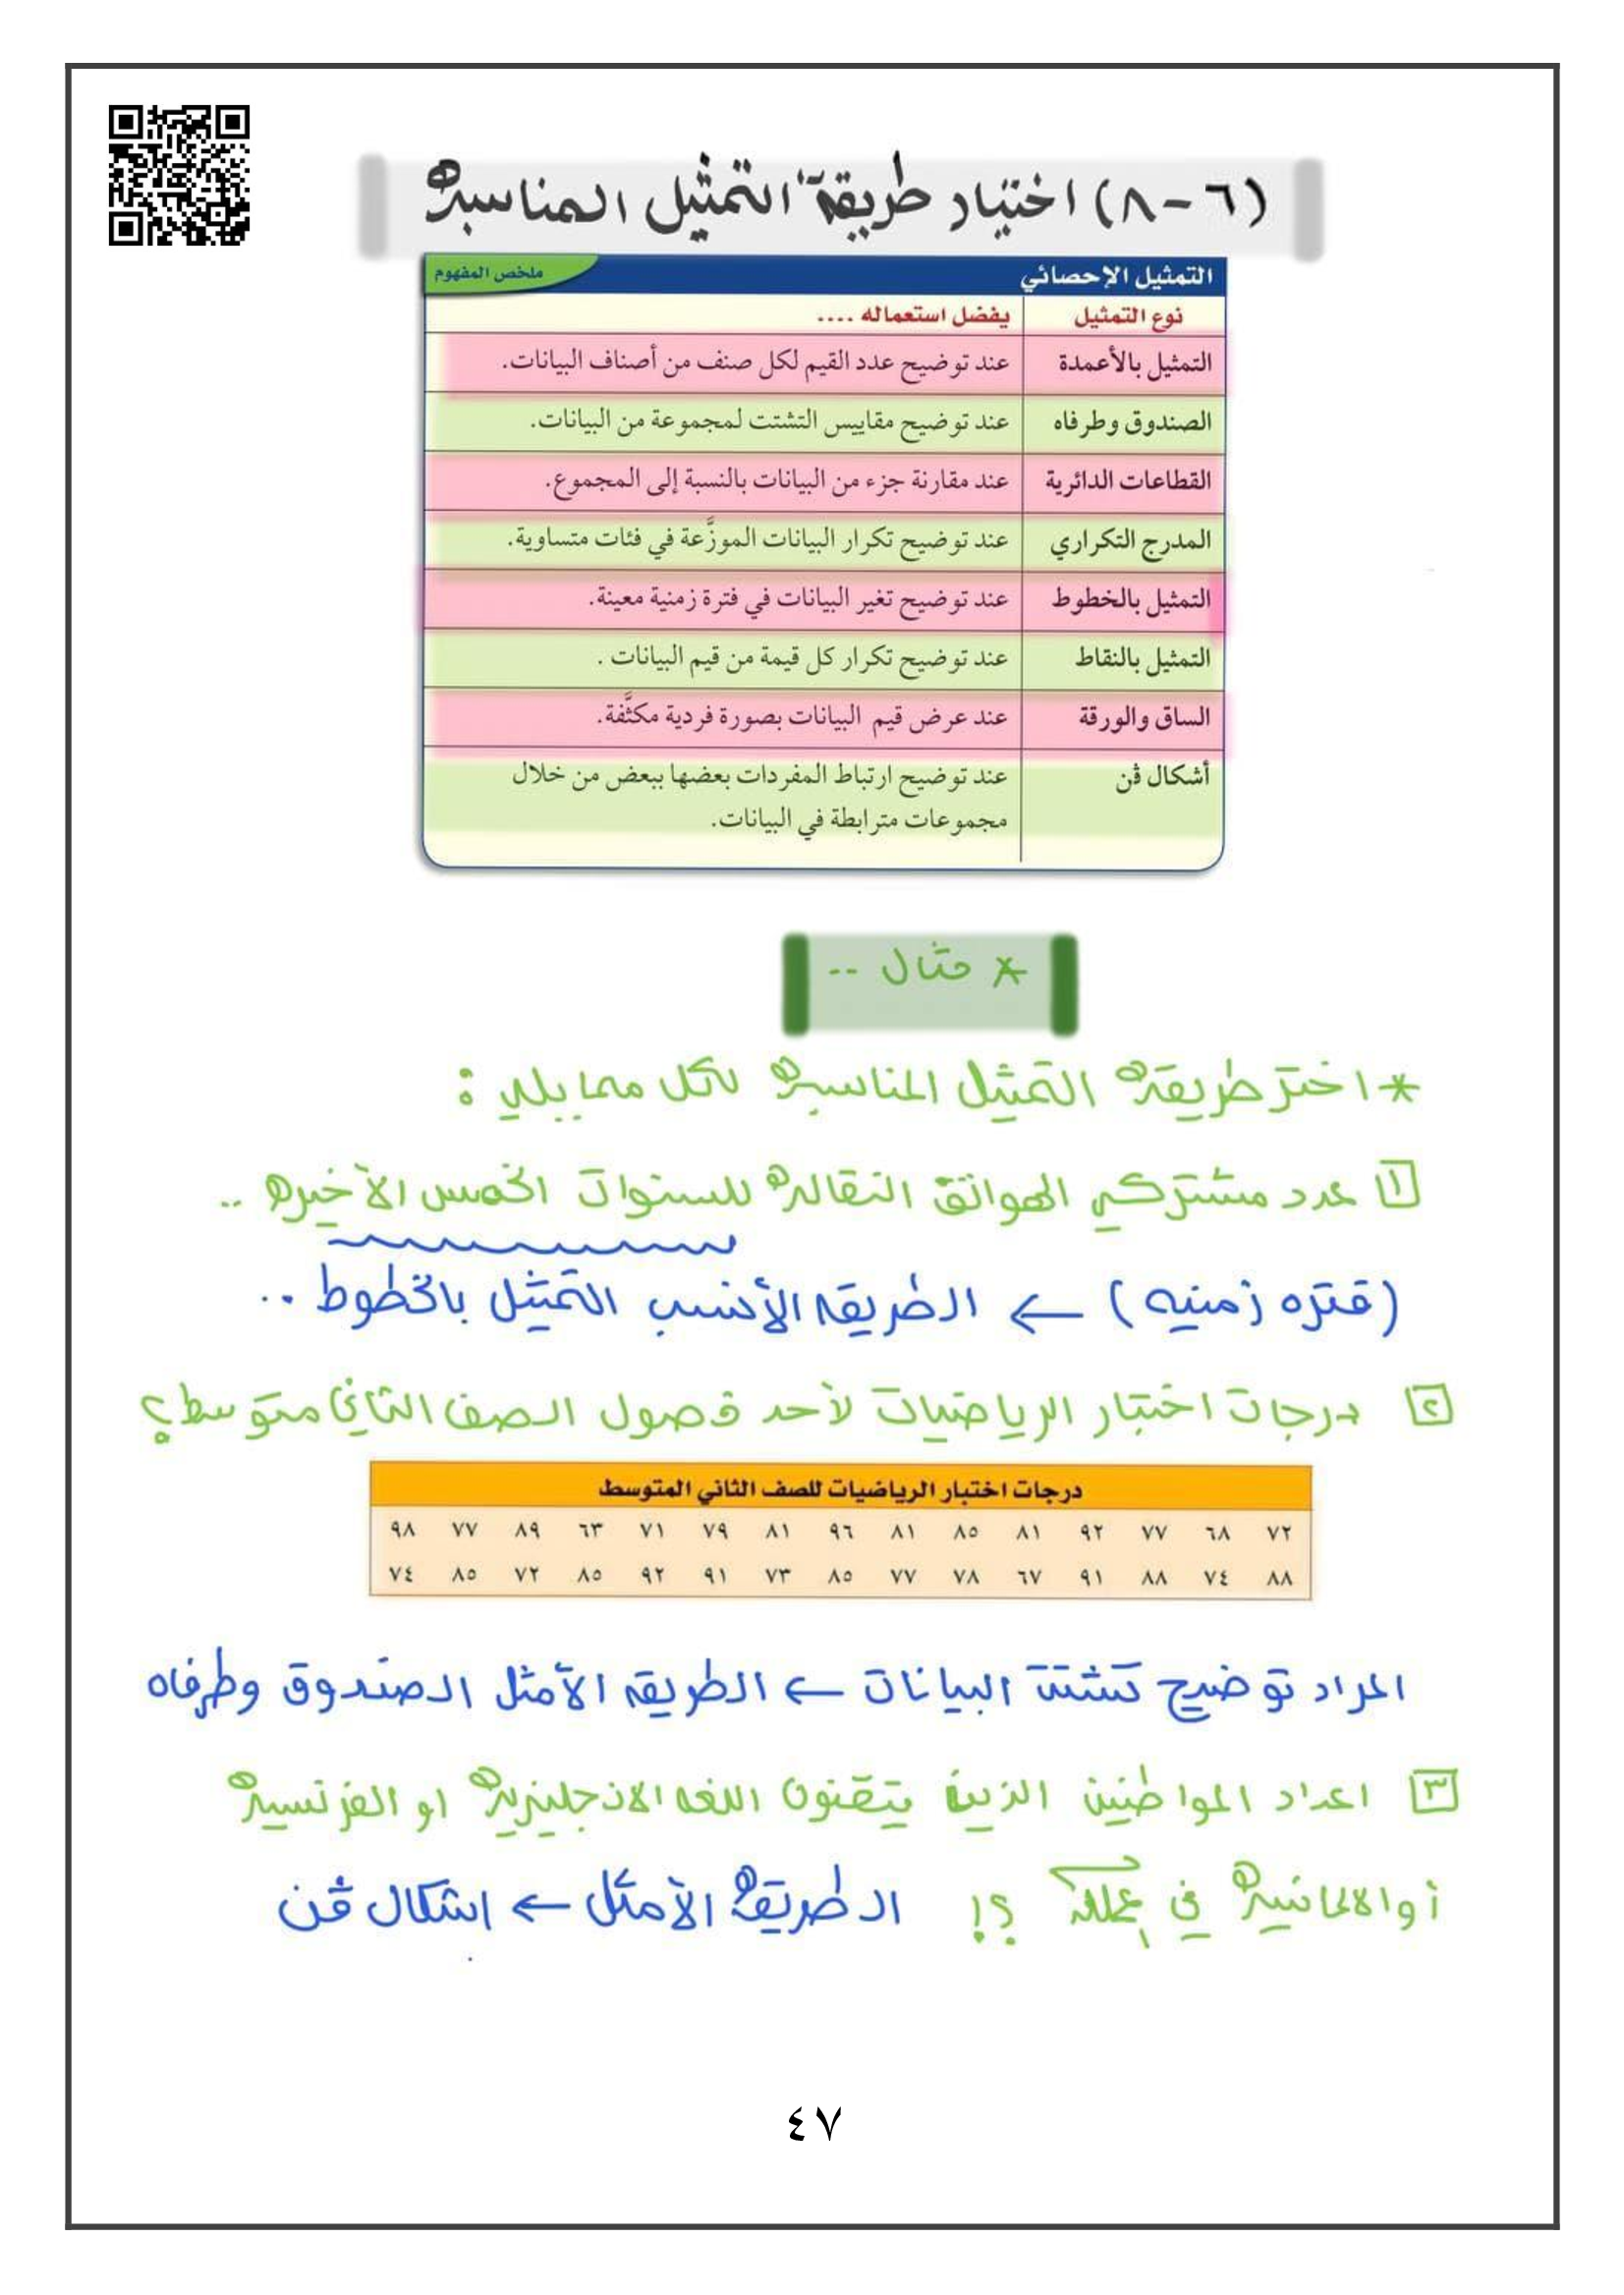 (٦-٨) اختيار طريقة التمثيل المناسبة
التمثيل الإحصائي
ملخص المفهوم
نوع التمثيل يفضل استعماله ....
التمثيل بالأعمدة عند توضيح عدد القيم لكل صنف من أصناف البيانات.
الصندوق وطرفاه عند توضيح مقاييس التشتت لمجموعة من البيانات.
القطاعات الدائرية عند مقارنة جزء من البيانات بالنسبة إلى المجموع.
المدرج التكراري عند توضيح تكرار البيانات الموزَّعة في فئات متساوية.
التمثيل بالخطوط عند توضيح تغير البيانات في فترة زمنية معينة.
التمثيل بالنقاط عند توضيح تكرار كل قيمة من قيم البيانات .
الساق والورقة عند عرض قيم البيانات بصورة فردية مكثَّفة.
أشكال ڤن عند توضيح ارتباط المفردات بعضها ببعض من خلال
مجموعات مترابطة في البيانات.
* مثال ..
* اختر طريقة التمثيل المناسبة لكل مما يلي :
١ عدد مشتركي الهواتف النقالة للسنوات الخمس الأخيرة ..
(فتره زمنيه) ← الطريقه الأنسب التمثيل بالخطوط ..
٢ درجات اختبار الرياضيات لأحد فصول الصف الثاني متوسط؟
درجات اختبار الرياضيات للصف الثاني المتوسط
٧٢ ٦٨ ٧٧ ٩٢ ٨١ ٨٥ ٨١ ٩٦ ٨١ ٧٩ ٧١ ٦٣ ٨٩ ٧٧ ٩٨
٨٨ ٧٤ ٨٨ ٩١ ٦٧ ٧٨ ٧٧ ٨٥ ٧٣ ٩١ ٩٢ ٨٥ ٧٢ ٨٥ ٧٤
المراد توضيح تشتت البيانات ← الطريقه الأمثل الصندوق وطرفاه
٣ اعداد المواطنين الذين يتقنون اللغه الانجليزية او الفرنسية
أو الالمانية في ؟! الطريقة الأمثل ← اشكال ڤن
٤٧